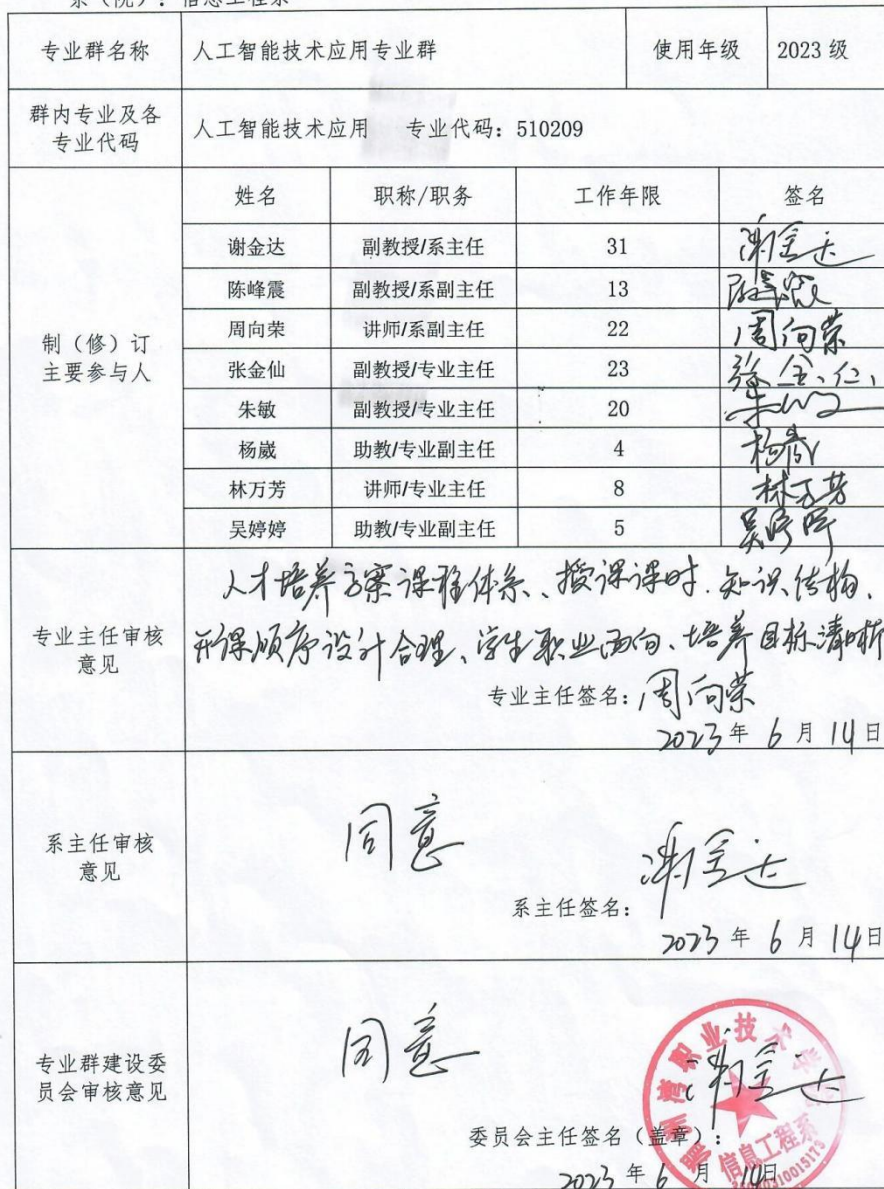 系（院）：信息工程系
专业群名称 人工智能技术应用专业群 使用年级 2023 级
群内专业及各
专业代码
人工智能技术应用 专业代码：510209
制（修）订
主要参与人
姓名 职称/职务 工作年限 签名
谢金达 副教授/系主任 31 谢金达
陈峰震 副教授/系副主任 13 陈峰震
周向荣 讲师/系副主任 22 周向荣
张金仙 副教授/专业主任 23 张金仙
朱敏 副教授/专业主任 20 朱敏
杨崴 助教/专业副主任 4 杨崴
林万芳 讲师/专业主任 8 林万芳
吴婷婷 助教/专业副主任 5 吴婷婷
专业主任审核
意见
人才培养方案课程体系、授课课时、知识结构、
开课顺序设计合理、学生职业面向、培养目标清晰
专业主任签名：周向荣
2023 年 6 月 14 日
系主任审核
意见
同意
系主任签名：谢金达
2023 年 6 月 14 日
专业群建设委
员会审核意见
同意
谢金达
委员会主任签名（盖章）：
2023 年 6 月 14 日
湄洲湾职业技术学院
信息工程系